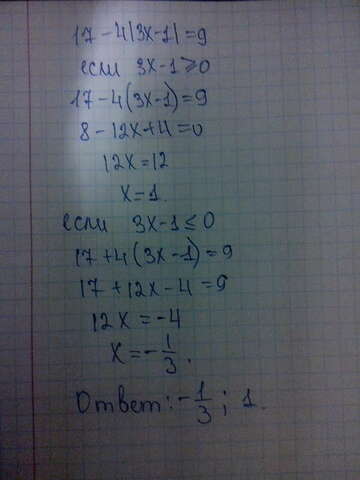 17-4|3x-1|=9
если 3x-1≥0
17-4(3x-1)=9
8-12x+4=0
12x=12
x=1.
если 3x-1≤0
17+4(3x-1)=9
17+12x-4=9
12x=-4
x=-1/3.
Ответ: -1/3; 1.